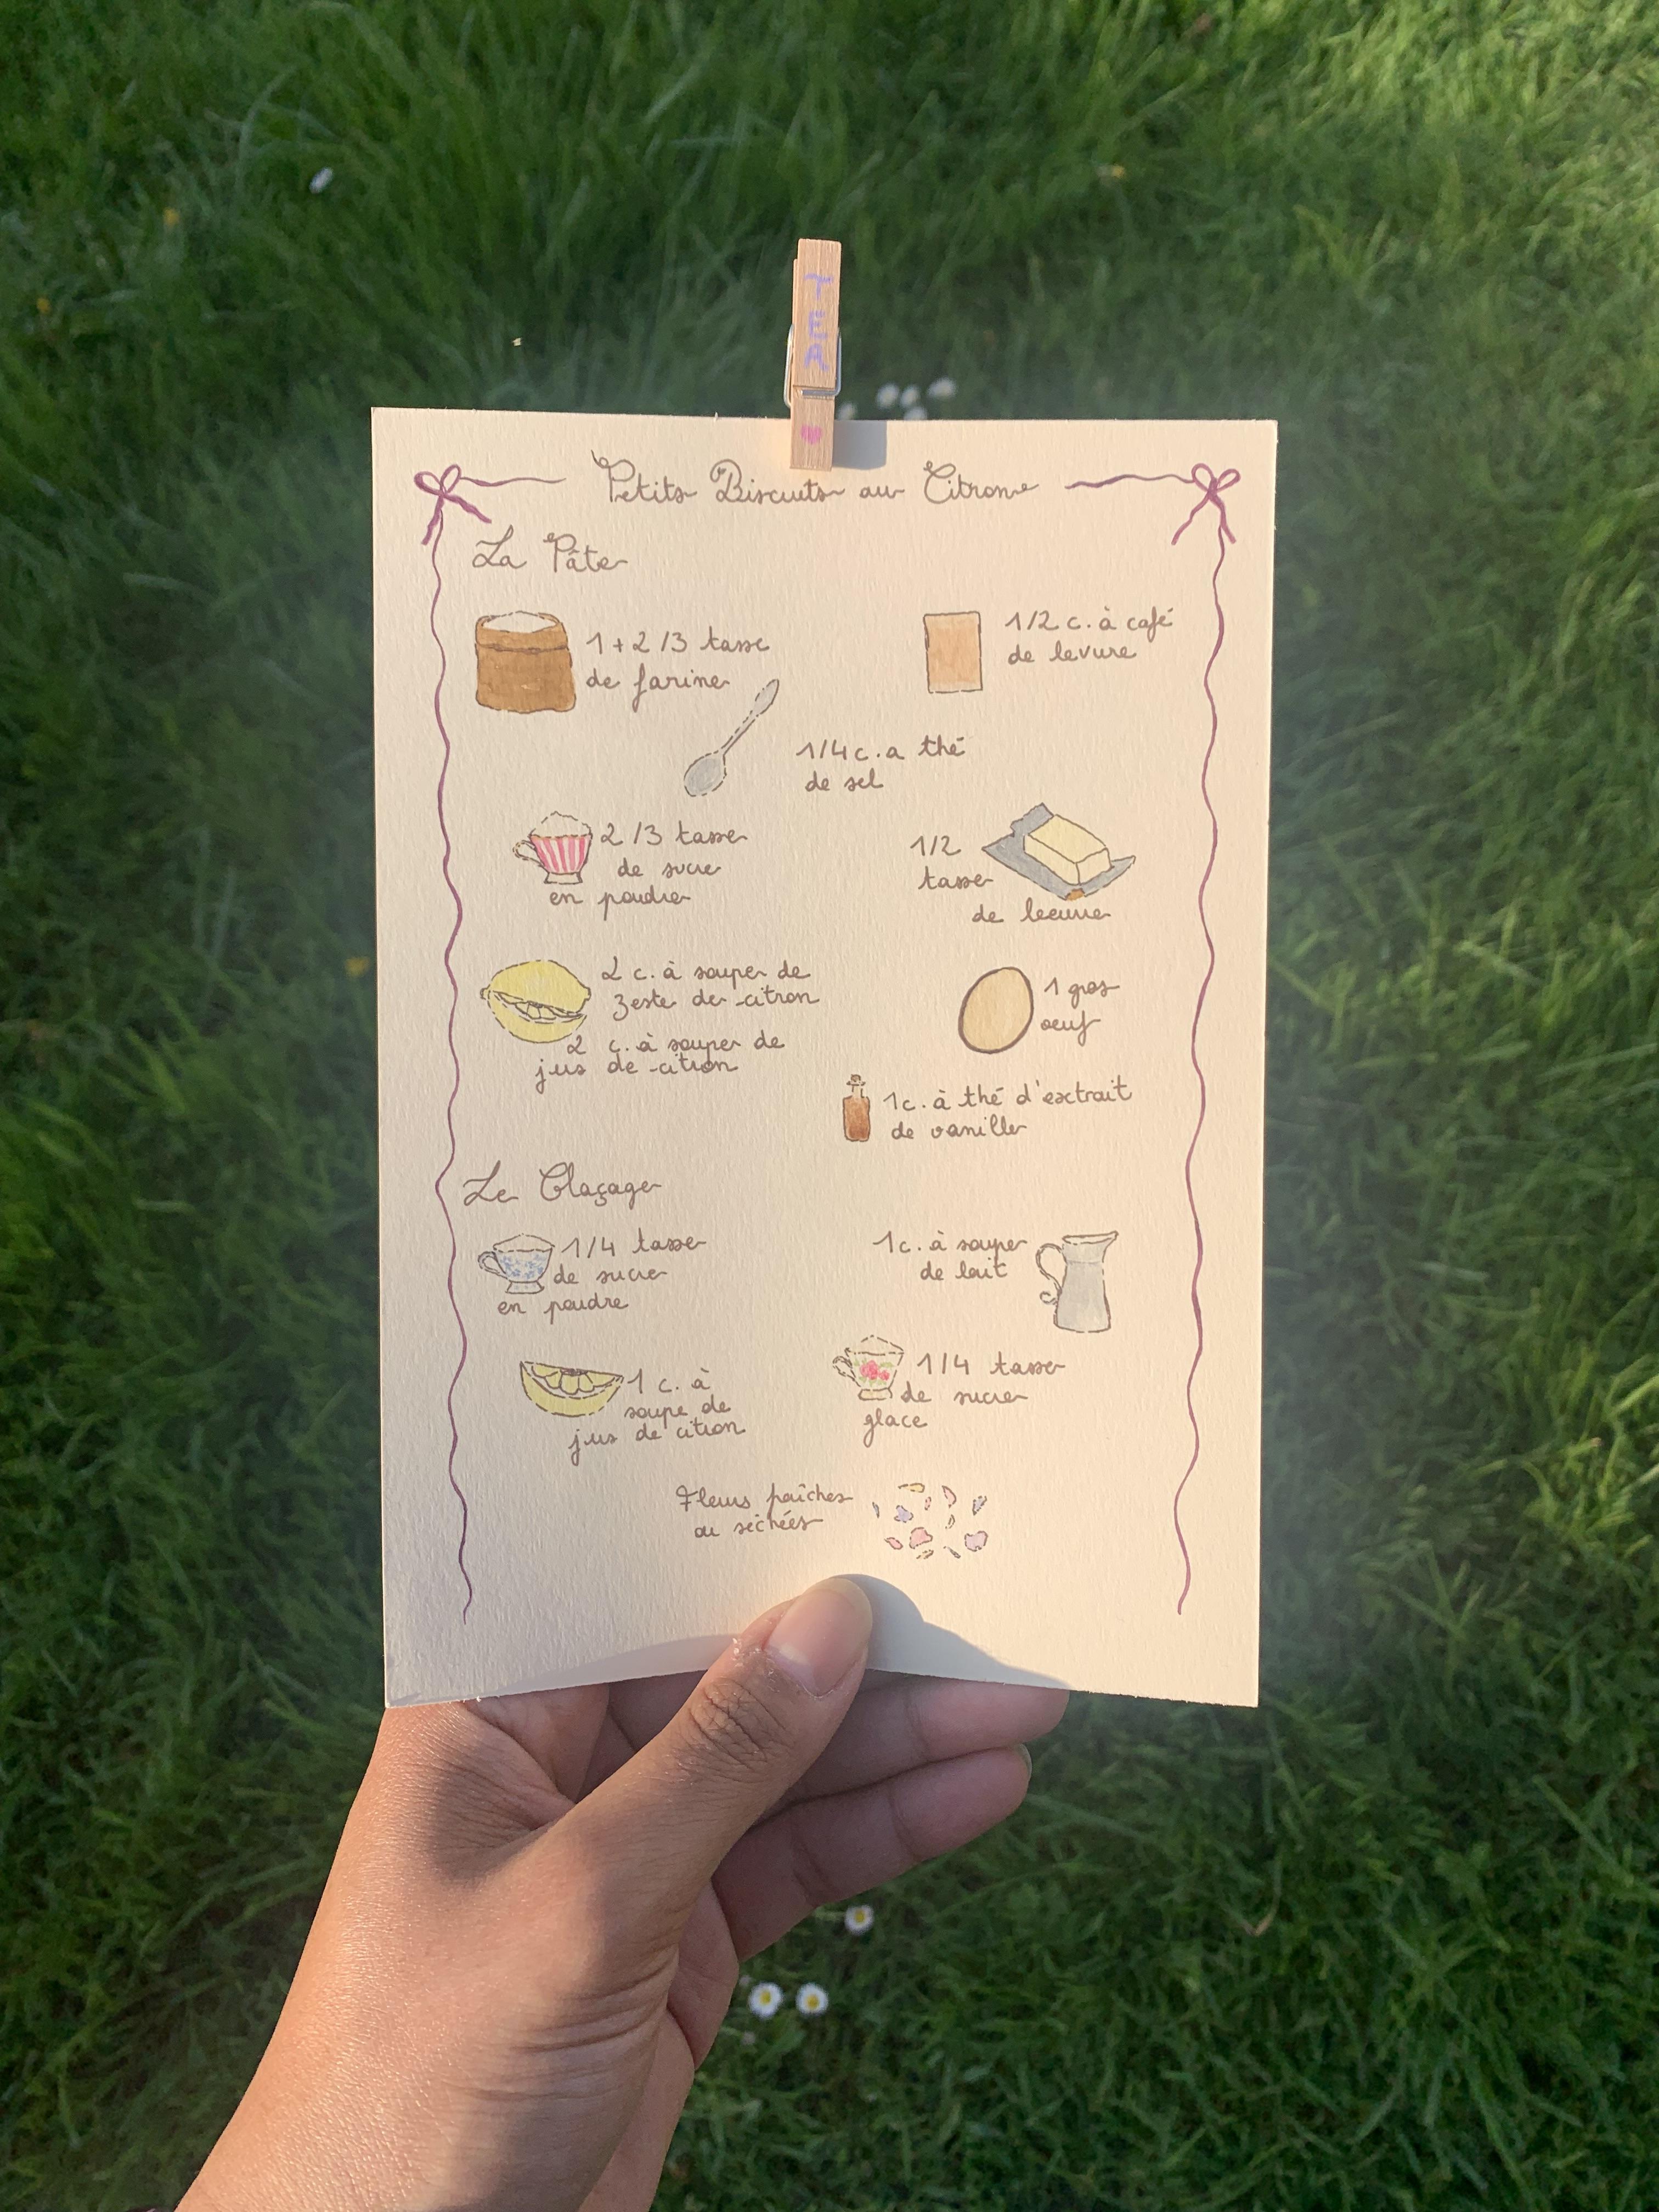 TEA
Petits Biscuits au Citron
La Pâte
1 + 2/3 tasse
de farine
1/2 c. à café
de levure
1/4 c. a thé
de sel
2/3 tasse
de sucre
en poudre
1/2
tasse
de beurre
2 c. à souper de
zeste de citron
2 c. à souper de
jus de citron
1 gros
oeuf
1 c. à thé d'extrait
de vanille
Le Glaçage
1/4 tasse
de sucre
en poudre
1 c. à souper
de lait
1 c. à
soupe de
jus de citron
1/4 tasse
de sucre
glace
Fleurs fraîches
ou séchées